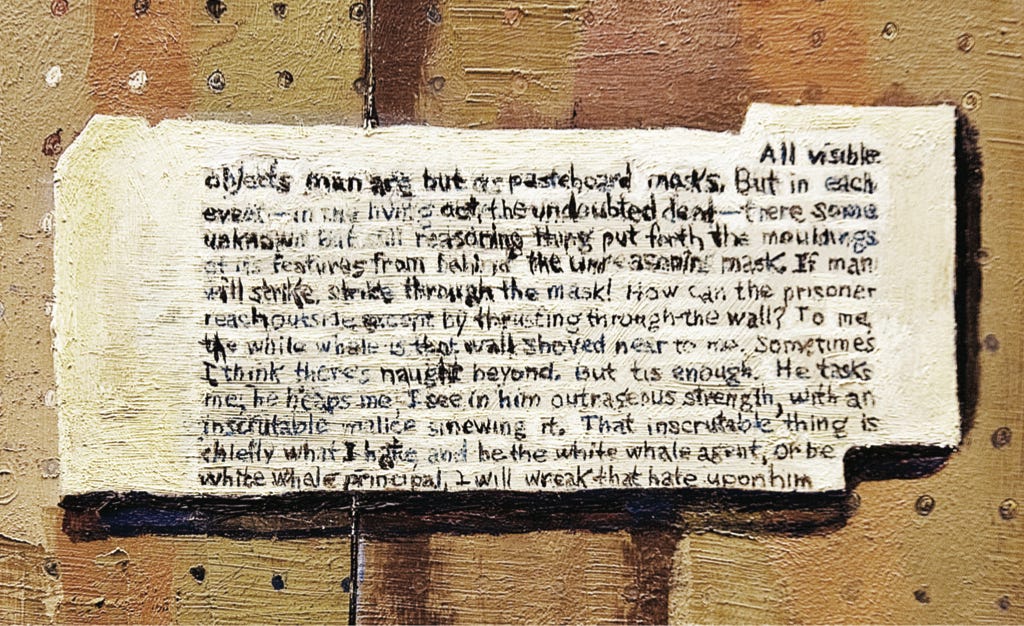 All visible
objects man are but as pasteboard masks. But in each
event—in the living act, the undoubted deat—there some
unknown but still reasoning thing put forth the mouldings
of its features from behind the unreasoning mask. If man
will strike, strike through the mask! How can the prisoner
reach outside except by thrusting through the wall? To me,
the white whale is that wall shoved near to me. Sometimes
I think there's naught beyond. But tis enough. He tasks
me; he heaps me, I see in him outrageous strength, with an
inscrutable malice sinewing it. That inscrutable thing is
chiefly what I hate; and be the white whale agent, or be
white whale principal, I will wreak that hate upon him